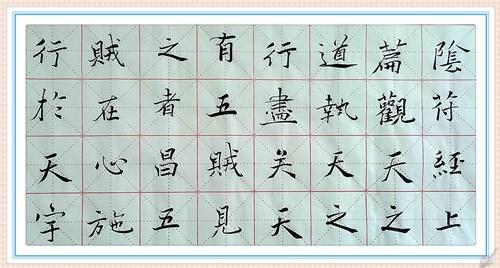 陰符經上
篇觀天之
道執天之
行盡矣天
有五賊見
之者昌五
賊在心施
行於天宇